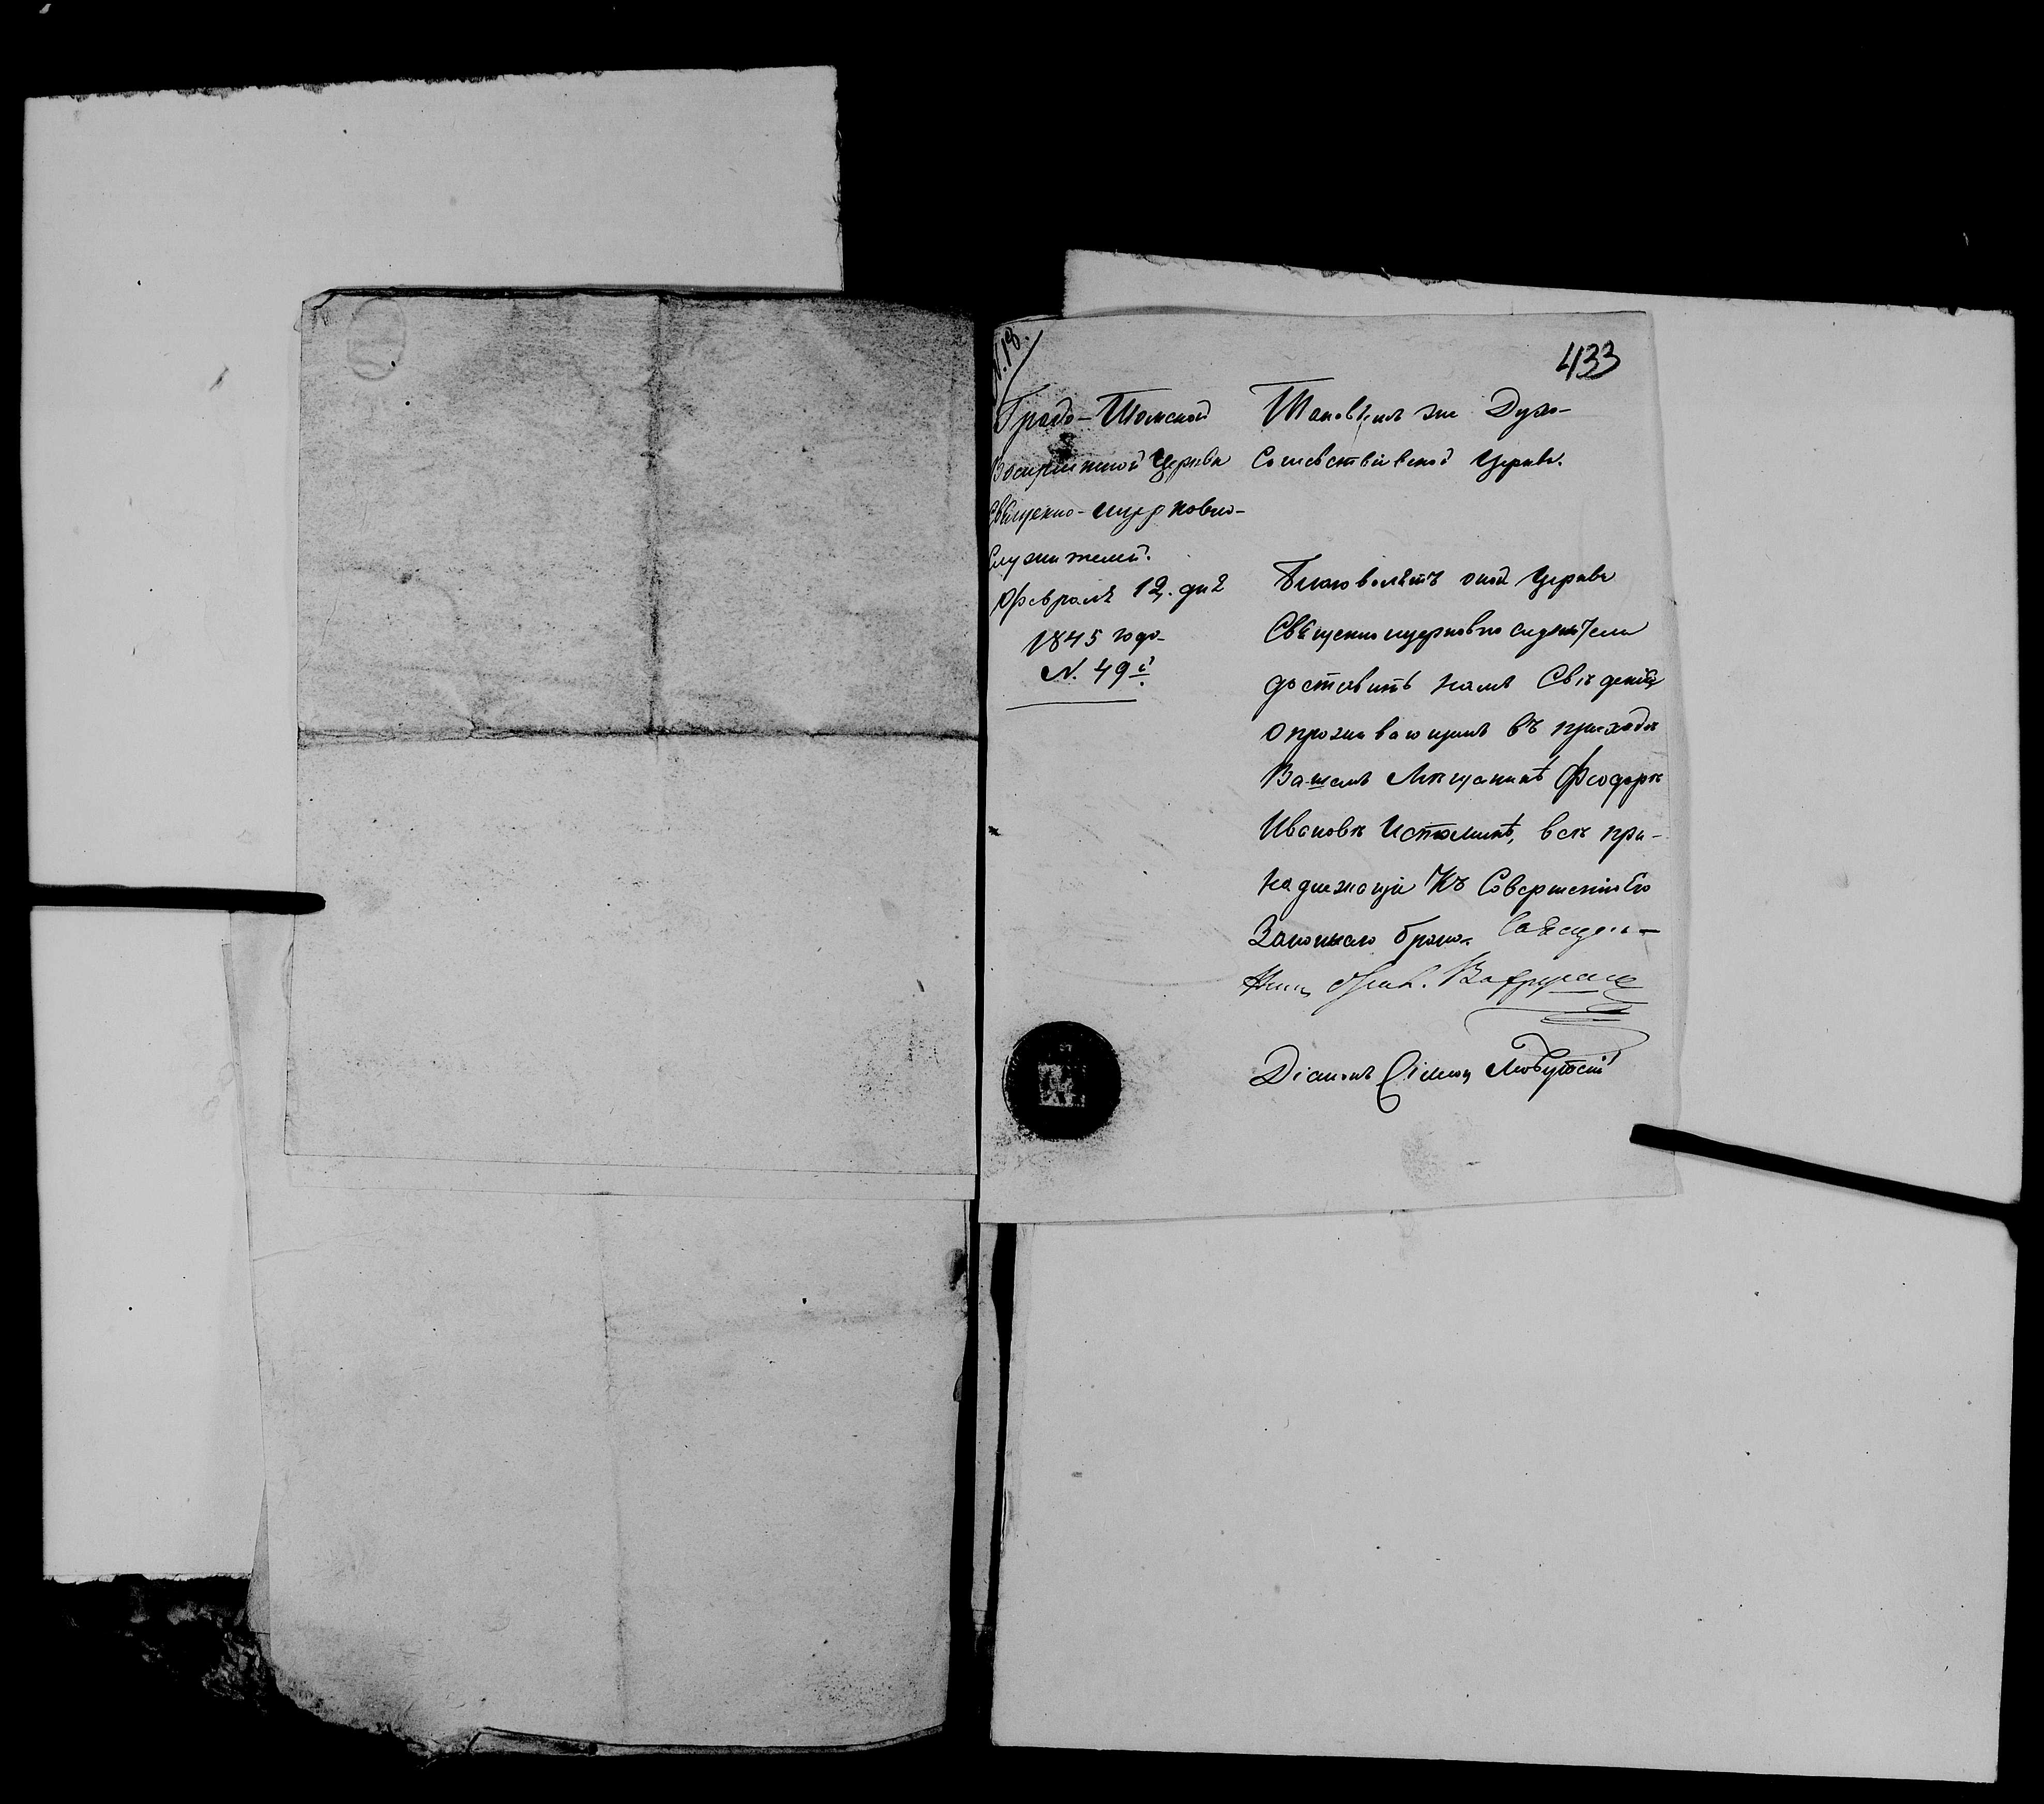 N. 18.
433
Градо-Томской
Воскресенской Церкви
Священно-церковно-
служителей.
Февраля 12. дня
1845 года
N. 49й
Таковымъ же Духо-
Сошественской Церкви.
Благоволятъ оной Церкви
Священноцерковнослужители
доставить намъ Сведенія
о проживающемъ въ приходѣ
Вашемъ Мѣщанинѣ Феодорѣ
Ивановѣ Истоминѣ, всѣ при-
надлежащія Къ Совершенію Его
Законнаго брака. Священ-
никъ
Діаконъ Сімеон